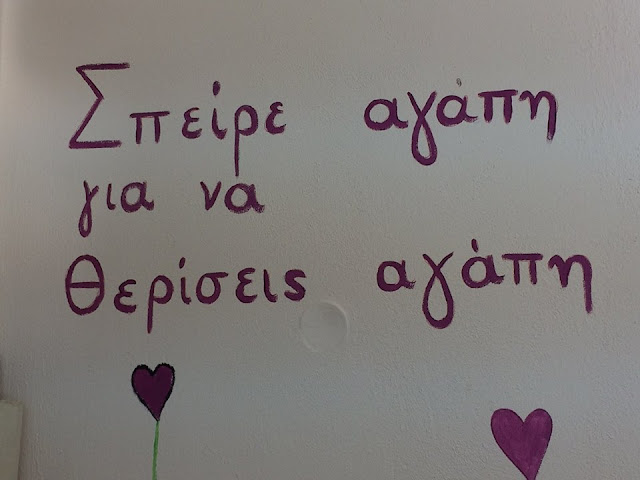 Σπείρε αγάπη
για να
θερίσεις αγάπη